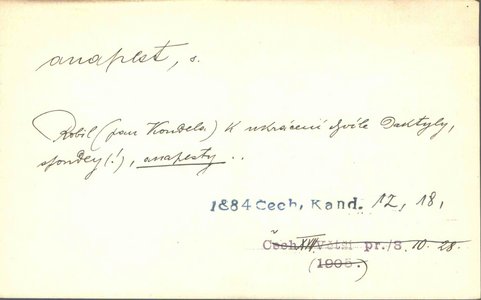 anapest, s.
Robil (pan Kondelo) k ukrácení chvíle Daktyly,
spondey (!), anapesty ..
1884 Čech, Kand. 12, 18,
Čech XVII Větší pr./S. 10. 28.
(1906.)